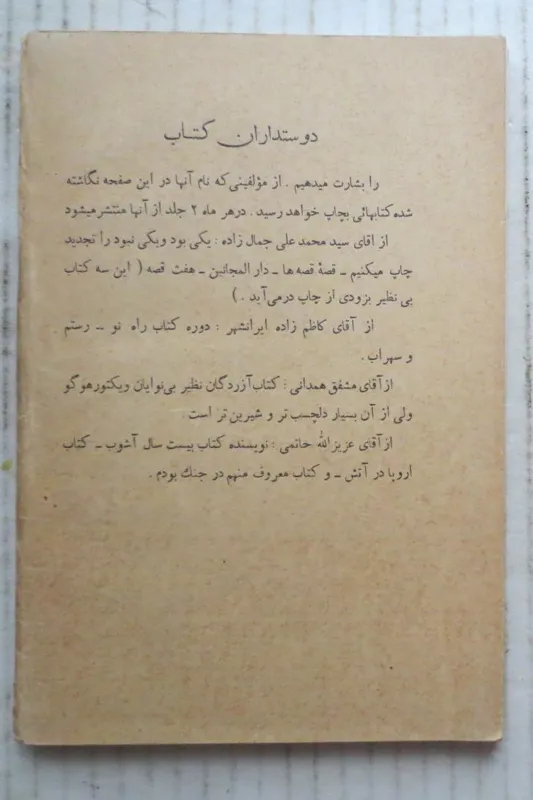 دوستداران کتاب
را بشارت میدهیم . از مؤلفینی که نام آنها در این صفحه نگاشته
شده کتابهائی بچاپ خواهد رسید . درهر ماه ۲ جلد از آنها منتشر میشود
از اقای سید محمد علی جمال زاده : یکی بود ویکی نبود را تجدید
چاپ میکنیم ـ قصهٔ قصه ها ـ دار المجانین ـ هفت قصه ( این سه کتاب
بی نظیر بزودی از چاپ درمی‌آید . )
از آقای کاظم زاده ایرانشهر : دوره کتاب راه نو ــ رستم
و سهراب .
از آقای مشفق همدانی : کتاب آزردگان نظیر بی‌نوایان ویکتورهوگو
ولی از آن بسیار دلچسب تر و شیرین تر است
از آقای عزیزالله حاتمی : نویسنده کتاب بیست سال آشوب ـ کتاب
اروپا در آتش ـ و کتاب معروف منهم در جنك بودم .